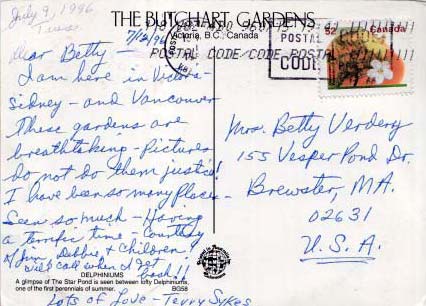 July 9, 1996
Tues
THE BUTCHART GARDENS
Victoria, B.C., Canada
7/12/96
POSTAL CODE/CODE POSTAL
POSTAL
CODE
52
Canada
Dear Betty —
I am here in Victoria -
Sidney - and Vancouver
These gardens are
breathtaking - Pictures
do not do them justice!
I have been so many places -
Seen so much - Having
a terrific time - Courtesy
of Jim - Debbie & Children
will call when I get
back!!
Lots of Love - Terry Sykes
Mrs. Betty Verdery
155 Vesper Pond Dr.
Brewster, MA.
02631
U.S.A.
DELPHINIUMS
A glimpse of The Star Pond is seen between lofty Delphiniums,
one of the first perennials of summer.
BG58